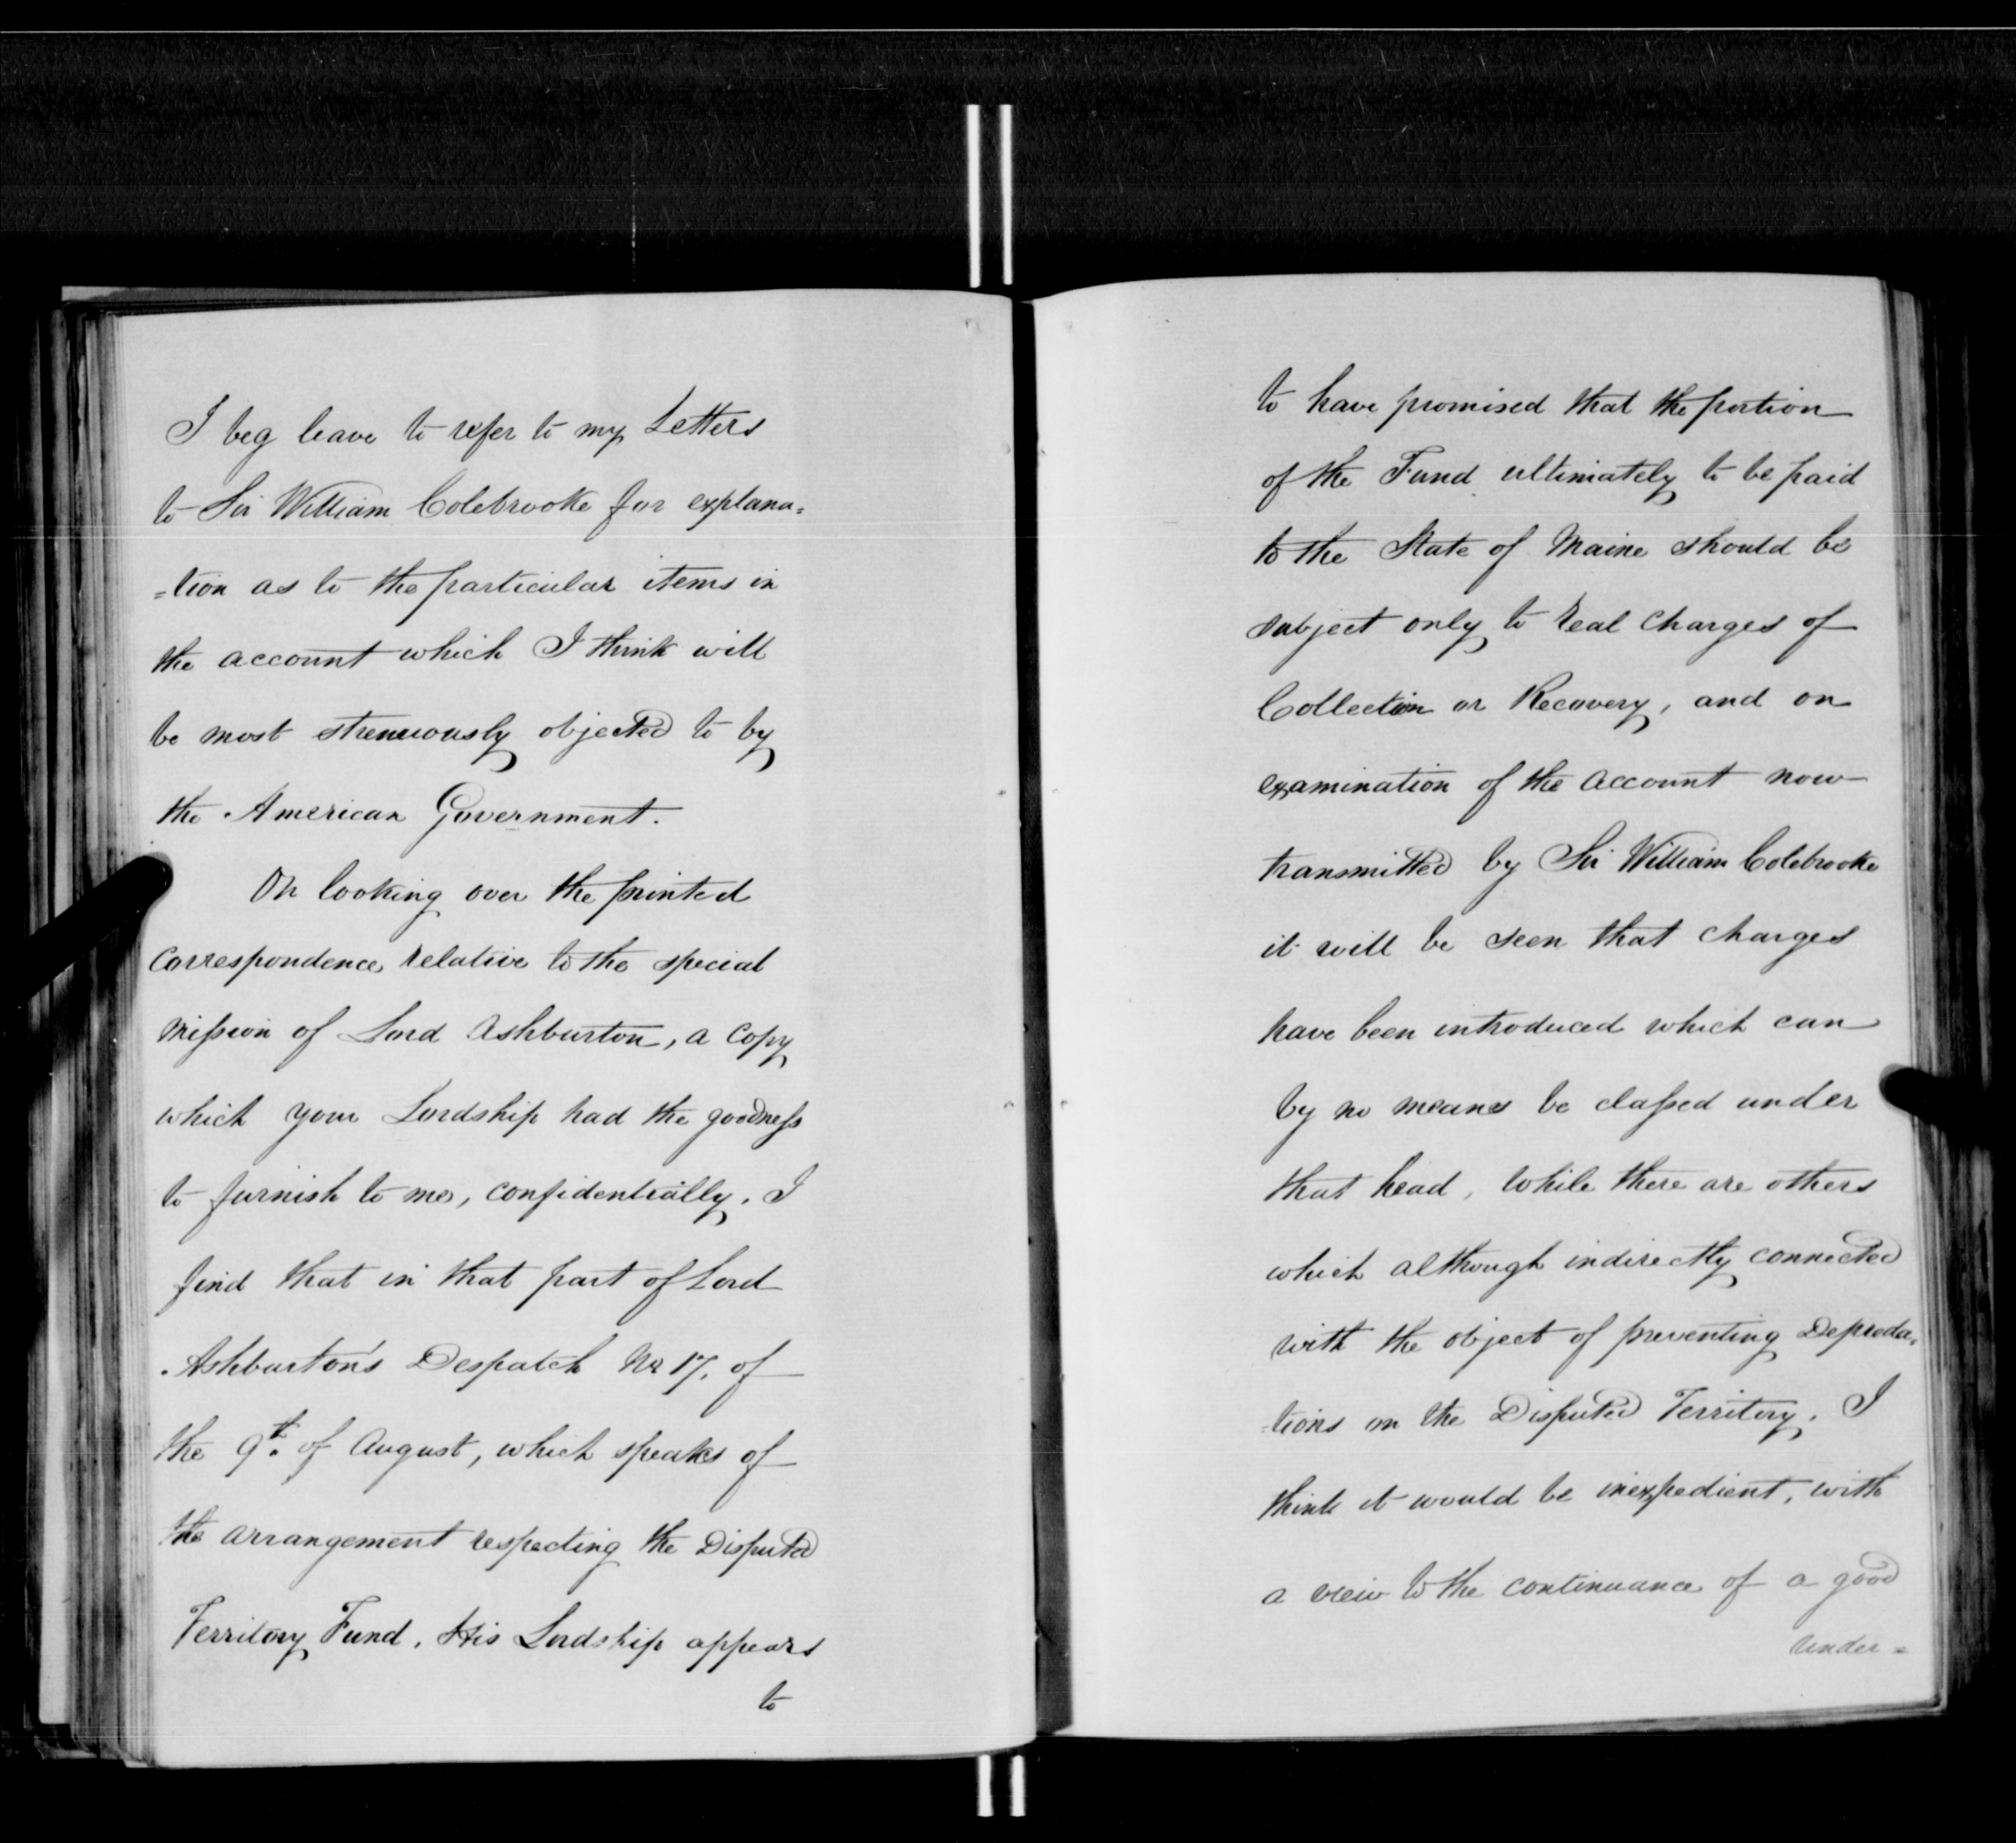 I beg leave to refer to my Letters
to Sir William Colebrooke for explana=
=tion as to the particular items in
the account which I think will
be most strenuously objected to by
the American Government.
On looking over the printed
correspondence relative to the special
Mission of Lord Ashburton, a copy
which your Lordship had the goodness
to furnish to me, confidentially, I
find that in that part of Lord
Ashburton's Despatch No 17, of
the 9th of August, which speaks of
the arrangement respecting the Disputed
Territory Fund, His Lordship appears
to
to have promised that the portion
of the Fund ultimately to be paid
to the State of Maine should be
subject only to real charges of
Collection or Recovery, and on
examination of the account now
transmitted by Sir William Colebrooke
it will be seen that charges
have been introduced which can
by no means be classed under
that head, while there are others
which although indirectly connected
with the object of preventing Depreda=
tions on the Disputed Territory, I
think it would be inexpedient, with
a view to the continuance of a good
under=